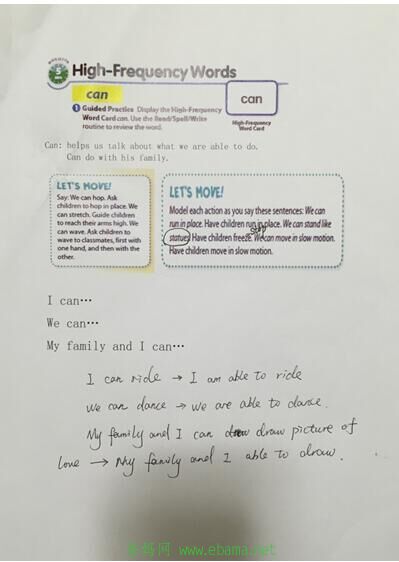 5
High-Frequency Words
can
can
1 Guided Practice Display the High-Frequency
Word Card can. Use the Read/Spell/Write
routine to review the word.
High-Frequency
Word Card
Can: helps us talk about what we are able to do.
Can do with his family.
LET'S MOVE!
Say: We can hop. Ask
children to hop in place. We
can stretch. Guide children
to reach their arms high. We
can wave. Ask children to
wave to classmates, first with
one hand, and then with the
other.
LET'S MOVE!
Model each action as you say these sentences: We can
run in place. Have children run in place. We can stand like
stop
statues. Have children freeze. We can move in slow motion.
Have children move in slow motion.
I can…
We can…
My family and I can…
I can ride → I am able to ride
We can dance → we are able to dance.
My family and I can draw picture of
love → My family and I able to draw.
www.ebama.net